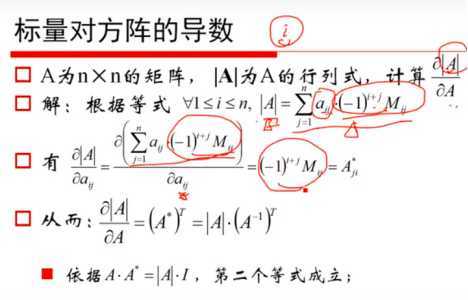 标量对方阵的导数
i
A为n×n的矩阵，|A|为A的行列式，计算 ∂|A|/∂A
解：根据等式 ∀1≤i≤n, |A|=∑_{j=1}^{n} a_{ij}·(-1)^{i+j}M_{ij}
有 ∂|A|/∂a_{ij} = ∂(∑_{j=1}^{n} a_{ij}·(-1)^{i+j}M_{ij})/∂a_{ij} = (-1)^{i+j}M_{ij} = A^*_{ji}
从而：∂|A|/∂A = (A^*)^T = |A|·(A^{-1})^T
依据A·A^*=|A|·I，第二个等式成立；